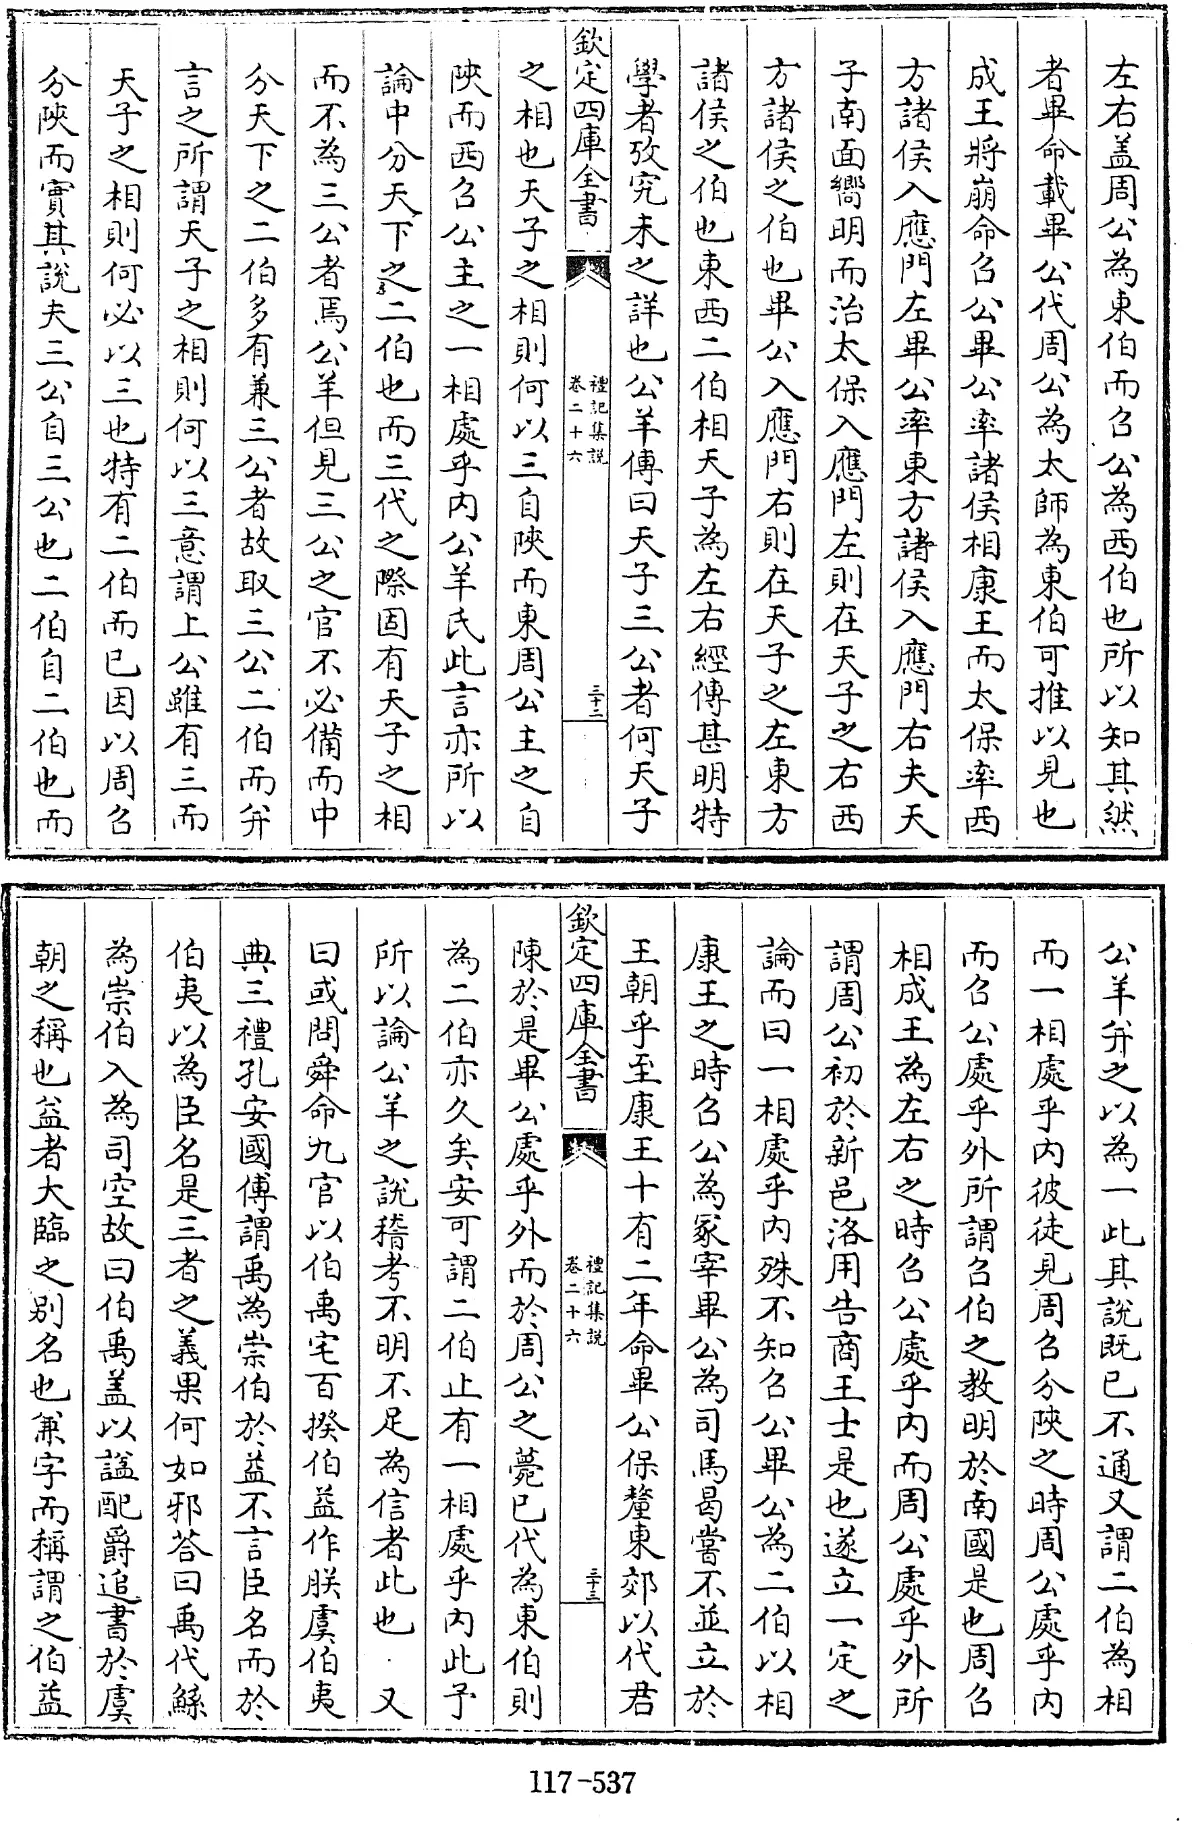 左右盖周公為東伯而召公為西伯也所以知其然
者畢命載畢公代周公為太師為東伯可推以見也
成王將崩命召公畢公率諸侯相康王而太保率西
方諸侯入應門左畢公率東方諸侯入應門右夫天
子南面嚮明而治太保入應門左則在天子之右西
方諸侯之伯也畢公入應門右則在天子之左東方
諸侯之伯也東西二伯相天子為左右經傳甚明特
學者攷究未之詳也公羊傳曰天子三公者何天子
欽定四庫全書
禮記集説
卷二十六
三十二
之相也天子之相則何以三自陜而東周公主之自
陜而西召公主之一相處乎内公羊氏此言亦所以
論中分天下之二伯也而三代之際固有天子之相
而不為三公者焉公羊但見三公之官不必備而中
分天下之二伯多有兼三公者故取三公二伯而并
言之所謂天子之相則何以三意謂上公雖有三而
天子之相則何必以三也特有二伯而已因以周召
分陜而實其説夫三公自三公也二伯自二伯也而
公羊并之以為一此其説既已不通又謂二伯為相
而一相處乎内彼徒見周召分陜之時周公處乎内
而召公處乎外所謂召伯之教明於南國是也周召
相成王為左右之時召公處乎内而周公處乎外所
謂周公初於新邑洛用告商王士是也遂立一定之
論而曰一相處乎内殊不知召公畢公為二伯以相
康王之時召公為冢宰畢公為司馬曷嘗不並立於
王朝乎至康王十有二年命畢公保釐東郊以代君
欽定四庫全書
禮記集説
卷二十六
三十三
陳於是畢公處乎外而於周公之薨已代為東伯則
為二伯亦久矣安可謂二伯止有一相處乎内此予
所以論公羊之説稽考不明不足為信者此也 又
曰或問舜命九官以伯禹宅百揆伯益作朕虞伯夷
典三禮孔安國傳謂禹為崇伯於益不言臣名而於
伯夷以為臣名是三者之義果何如邪荅曰禹代鯀
為崇伯入為司空故曰伯禹盖以諡配爵追書於虞
朝之稱也益者大臨之别名也兼字而稱謂之伯益
117-537